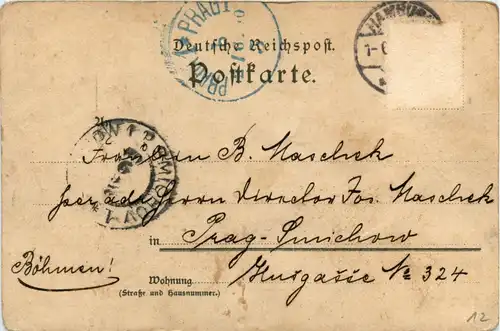 PRAG 1
HAMBURG
Deutsche Reichspost.
Postkarte.
Fräulein B. Maschek
per adr. Herrn Director Jos. Maschek
in Prag-Smichow
Böhmen!
Wohnung
(Straße und Hausnummer.)
№ 324
12